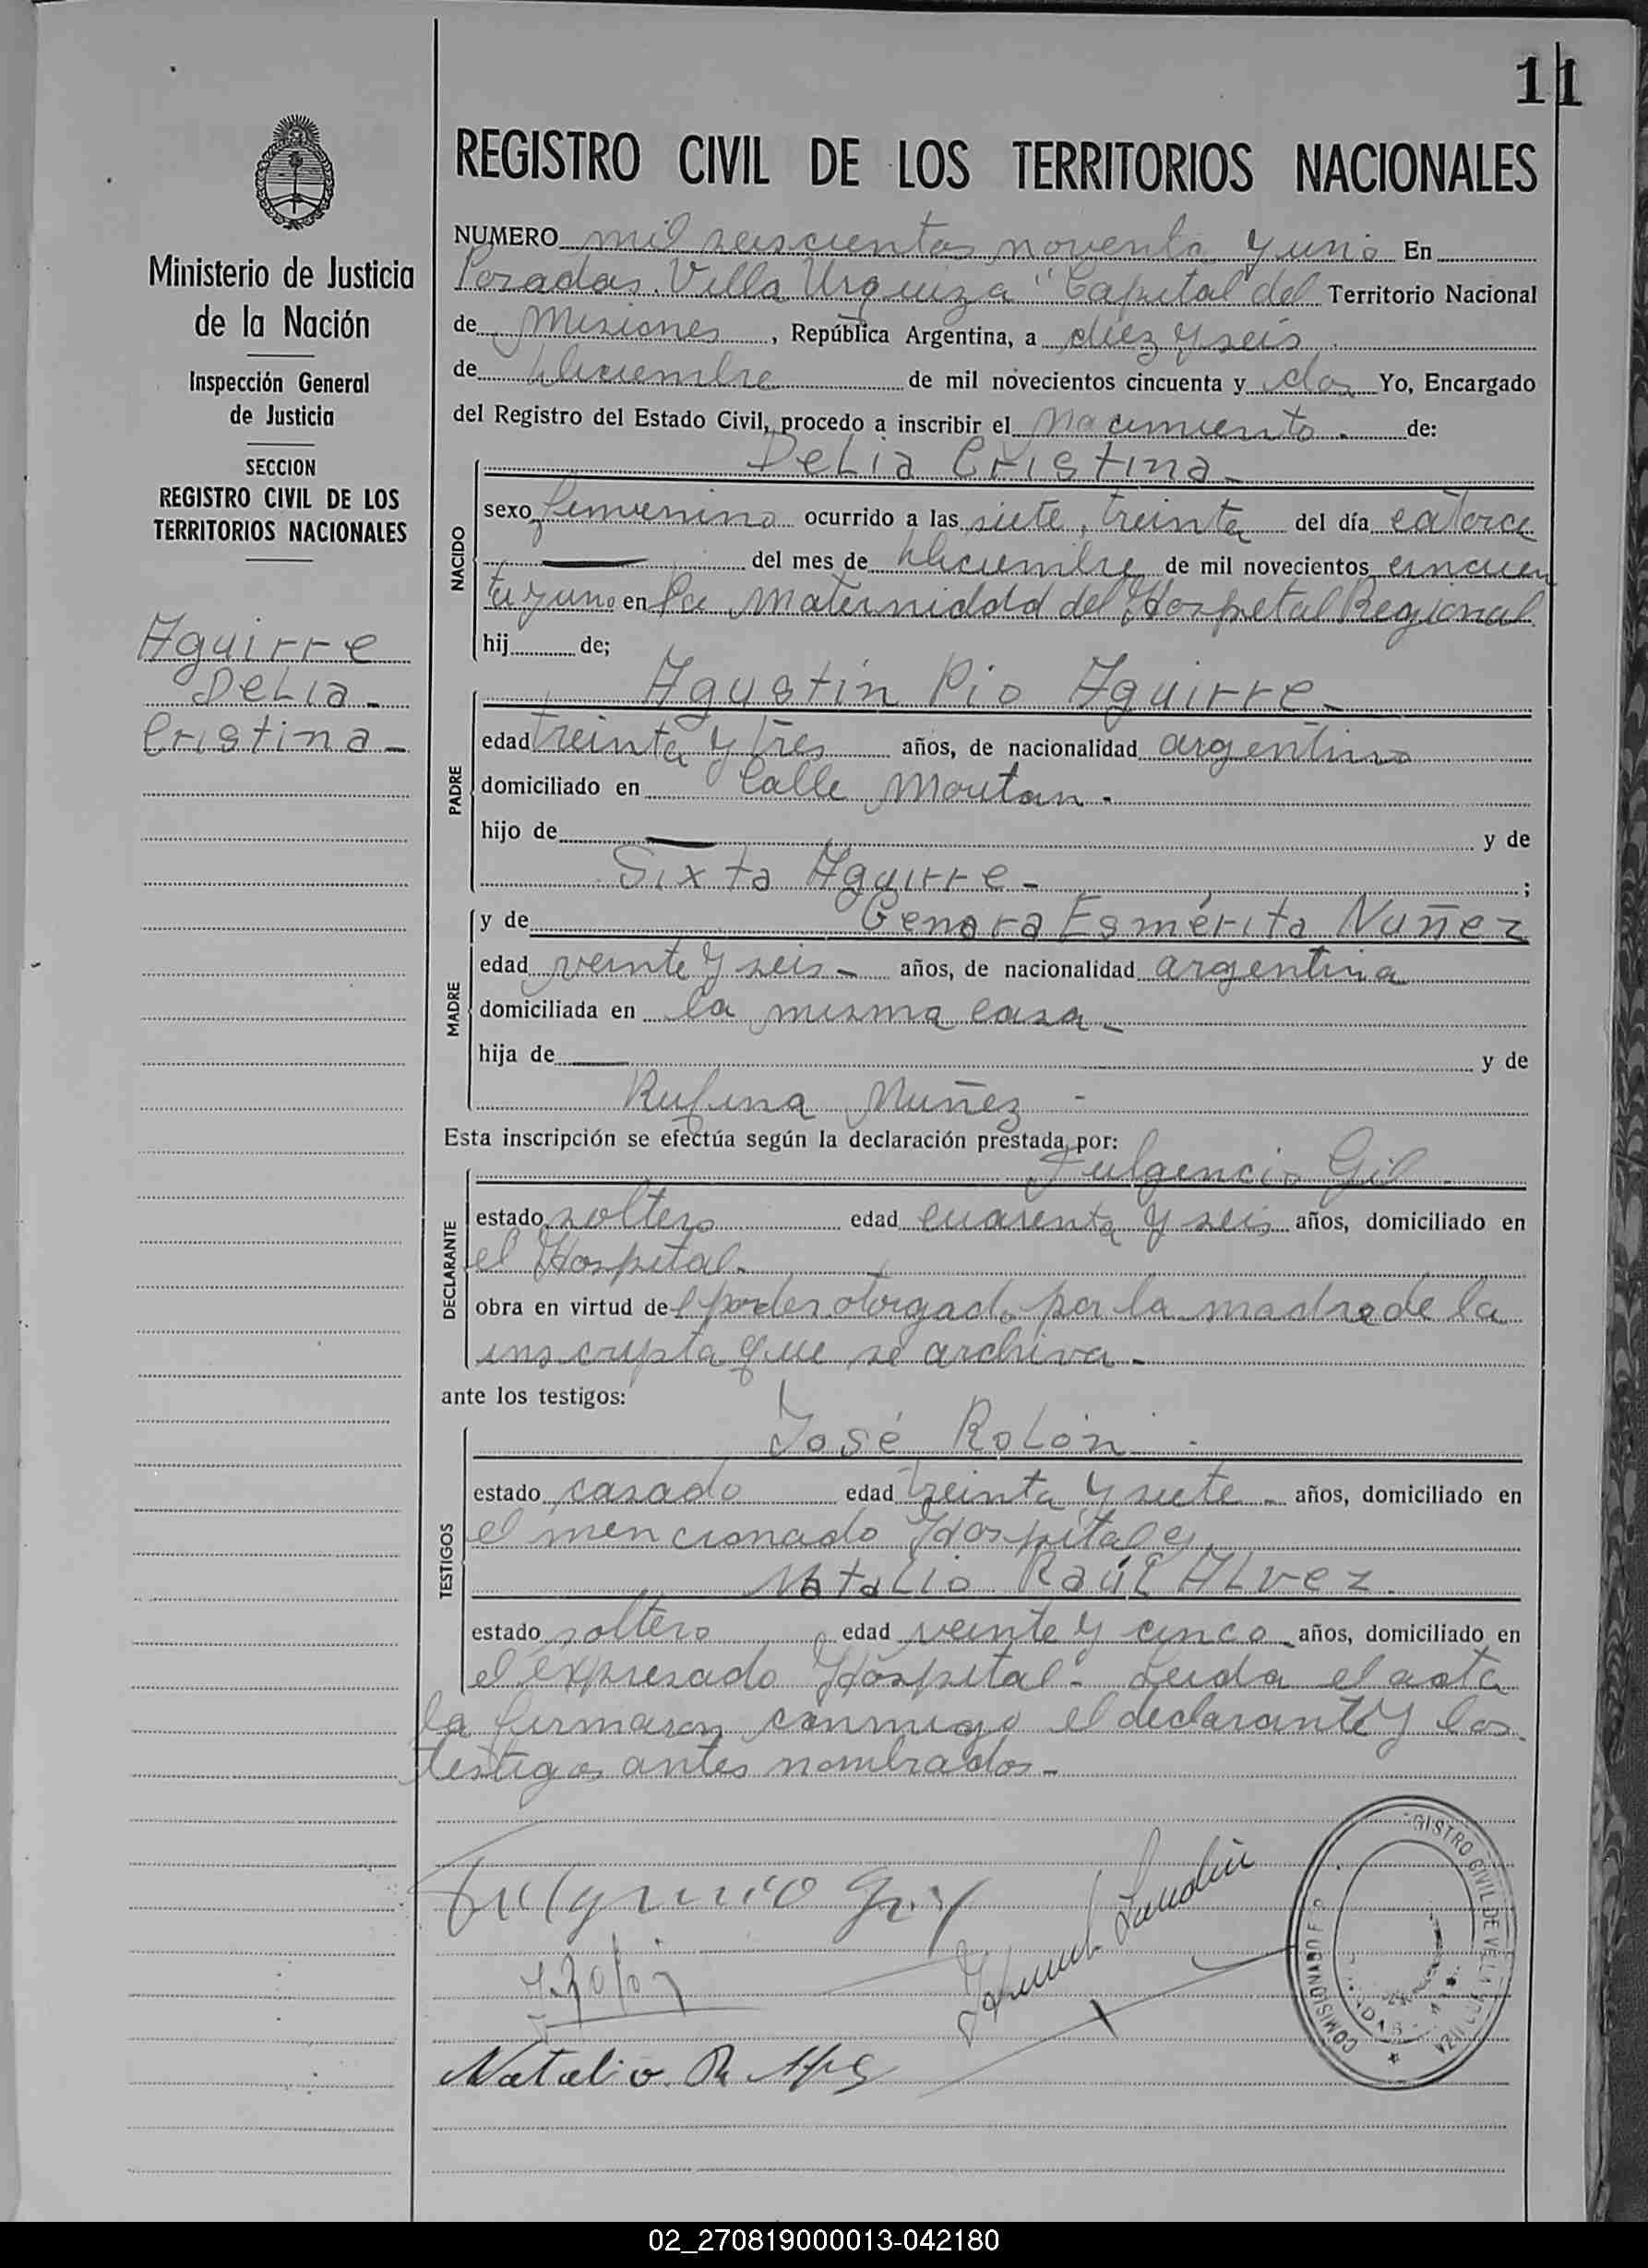 11
REGISTRO CIVIL DE LOS TERRITORIOS NACIONALES
Ministerio de Justicia
de la Nación
Inspección General
de Justicia
SECCION
REGISTRO CIVIL DE LOS
TERRITORIOS NACIONALES
Aguirre
Delia
Cristina
NUMERO mil seiscientos noventa y uno En
Posadas. Villa Urquiza "Capital del Territorio Nacional
de Misiones, República Argentina, a diez y seis
de Diciembre de mil novecientos cincuenta y dos Yo, Encargado
del Registro del Estado Civil, procedo a inscribir el Nacimiento. de:
NACIDO
Delia Cristina
sexo femenino ocurrido a las siete, treinta del día catorce
del mes de Diciembre de mil novecientos cincuen
ta y uno en la Maternidad del Hospital Regional
hij de;
PADRE
Agustín Pio Aguirre
edad treinta y tres años, de nacionalidad argentino
domiciliado en Calle
hijo de y de
Sixta Aguirre ;
MADRE
y de Genara Esmérita Nuñez
edad veinte y seis años, de nacionalidad argentina
domiciliada en la misma casa
hija de y de
Rufina Nuñez
Esta inscripción se efectúa según la declaración prestada por:
DECLARANTE
Fulgencio Gil
estado soltero edad cuarenta y seis años, domiciliado en
el Hospital.
obra en virtud del poder otorgado por la madre de la
inscripta que se archiva
ante los testigos:
TESTIGOS
José Rolón
estado casado edad treinta y siete años, domiciliado en
el mencionado Hospital y
Natalio Raúl Alvez.
estado soltero edad veinte y cinco años, domiciliado en
el expresado Hospital. Leida el acta
la firmaron conmigo el declarante y los
testigos antes nombrados
Fulgencio Gil
J. Rolón
Natalio R.
REGISTRO CIVIL DE VILLA URQUIZA
02_270819000013-042180